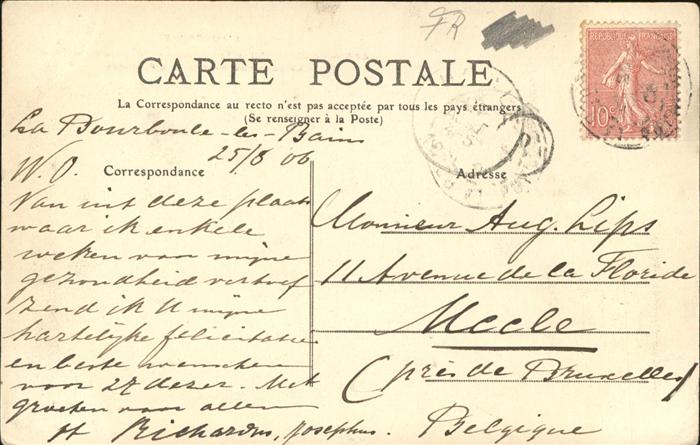 FR
RÉPUBLIQUE FRANÇAISE
10c
CARTE POSTALE
La Correspondance au recto n'est pas acceptée par tous les pays étrangers
(Se renseigner à la Poste)
La Bourboule-les-Bains
25/8 06
Correspondance
W.O.
Van uit deze plaats
waar ik enkele
weken voor mijne
gezondheid vertoef
zend ik U mijne
hartelijke felicitatie
en beste wenschen
voor 27 dezer. Met
groeten voor allen
Richardus, Josephus.
Adresse
Monsieur Aug. Lips
11 Avenue de la Floride
Uccle
(près de Bruxelles)
Belgique